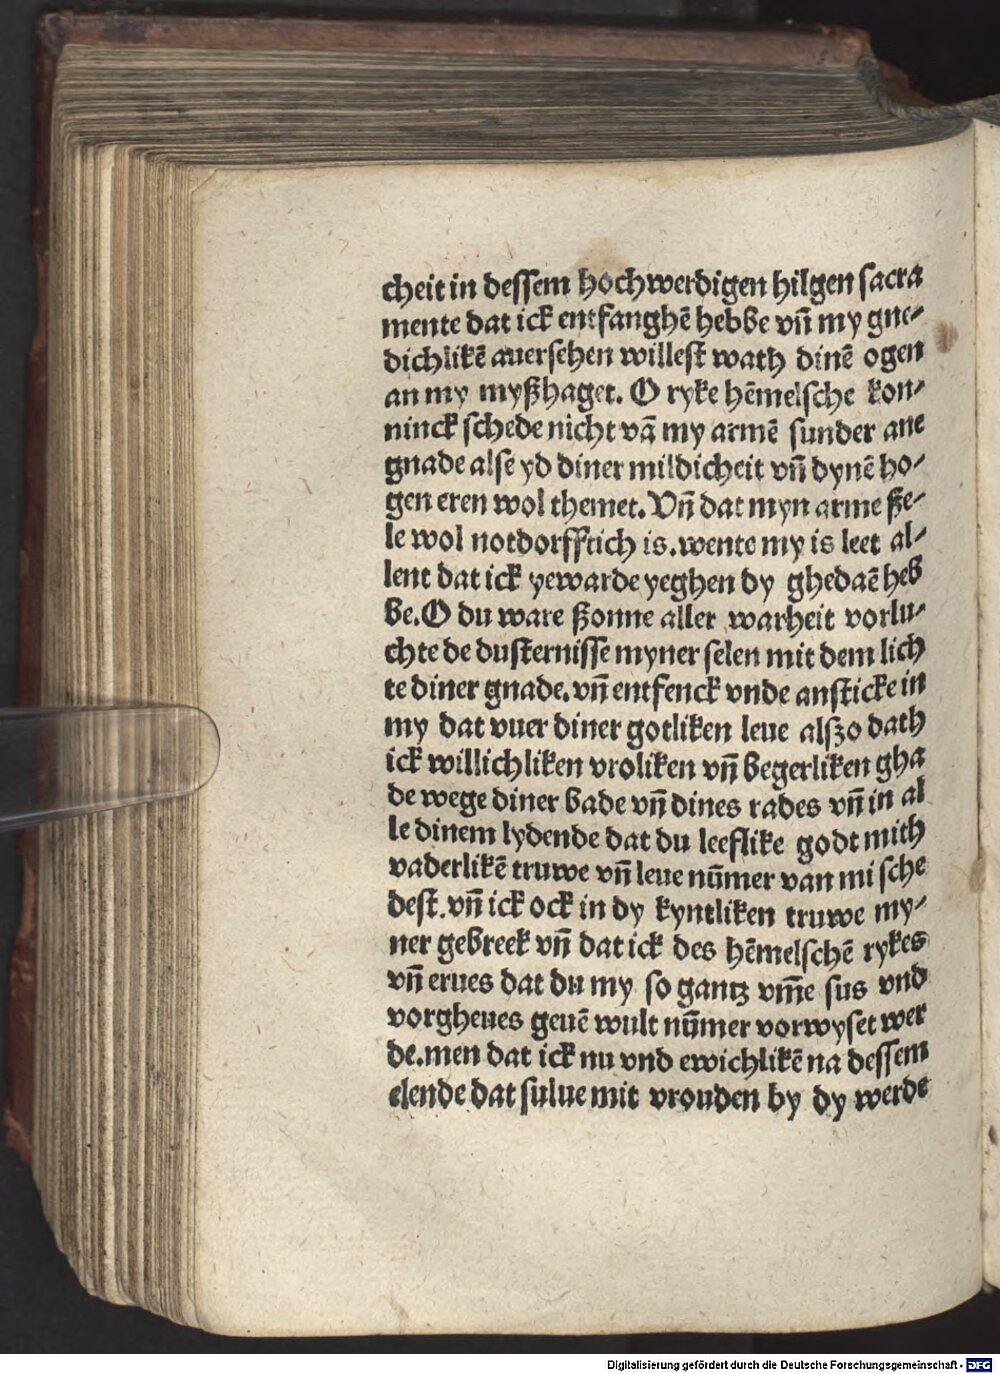 cheit in dessem hochwerdigen hilgen sacra
mente dat ick entfanghē hebbe vn̄ my gne-
dichlikē auersehen willest wath dinē ogen
an my myßhaget. O ryke hēmelsche kon-
ninck schede nicht vā my armē sunder ane
gnade alse yd diner mildicheit vn̄ dynē ho-
gen eren wol themet. Vn̄ dat myn arme ße-
le wol notdorfftich is. wente my is leet al-
lent dat ick yewarde yeghen dy ghedaē heb
be. O du ware ßonne aller warheit vorlu-
chte de dusternisse myner selen mit dem lich
te diner gnade. vn̄ entfenck vnde ansticke in
my dat vuer diner gotliken leue alszo dath
ick willichliken vroliken vn̄ begerliken gha
de wege diner bade vn̄ dines rades vn̄ in al
le dinem lydende dat du leeflike godt mith
vaderlikē truwe vn̄ leue nūmer van mi sche
dest. vn̄ ick ock in dy kyntliken truwe my-
ner gebreek vn̄ dat ick des hēmelschē rykes
vn̄ erues dat du my so gantz vm̄e sus vnd
vorgheues geuē wult nūmer vorwyset wer
de. men dat ick nu vnd ewichlikē na dessem
elende dat sulue mit vrouden by dy werde
Digitalisierung gefördert durch die Deutsche Forschungsgemeinschaft - DFG